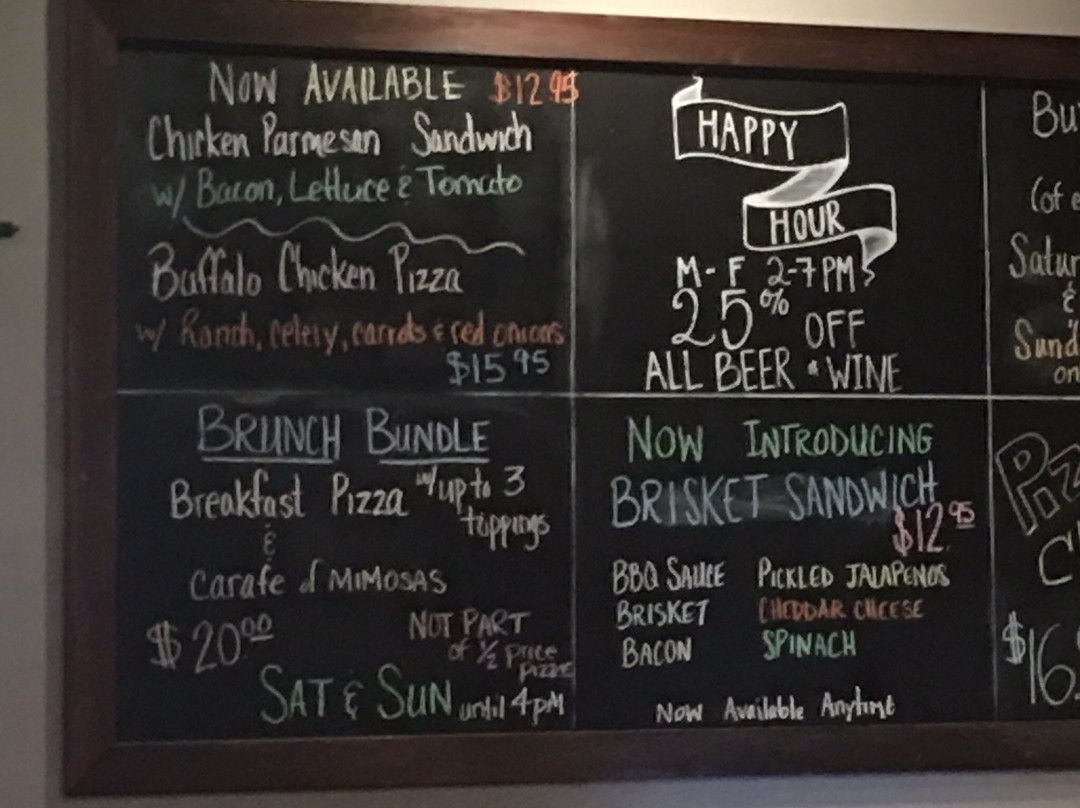 NOW AVAILABLE $12.95
Chicken Parmesan Sandwich
w/ Bacon, Lettuce & Tomato
Buffalo Chicken Pizza
w/ Ranch, celery, carrots & red onions
$15 95
HAPPY
HOUR
M-F 2-7PM
25% OFF
ALL BEER & WINE
BRUNCH BUNDLE
Breakfast Pizza w/ up to 3
toppings
&
Carafe of MIMOSAS
$20 00
NOT PART
of 1/2 price
pizza
SAT & SUN until 4pM
NOW INTRODUCING
BRISKET SANDWICH
$12.95
BBQ SAUCE PICKLED JALAPENOS
BRISKET CHEDDAR CHEESE
BACON SPINACH
Now Available Anytime
Bu
(of e
Satur
&
Sund
on
Piz
C
$16.